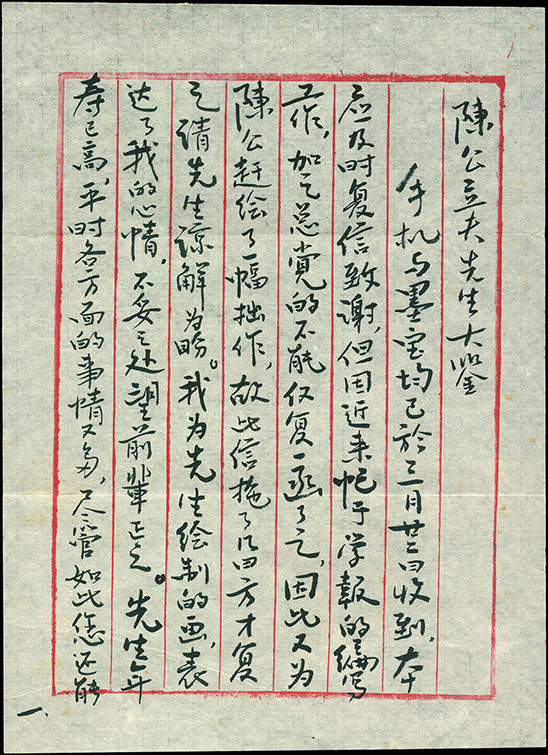 陳公立夫先生大鑒
手机与墨宝均已於三月廿日收到,本
应及时复信致谢,但因近来忙于学报的编写
工作,加之总觉的不能仅复一函了之,因此又为
陳公赶绘了一幅拙作,故此信拖了几日方才复
之请先生谅解为盼。我为先生绘制的画,表
达了我的心情,不妥之处望前辈正之。先生年
寿已高,平时各方面的事情又多,尽管如此您还能
一.